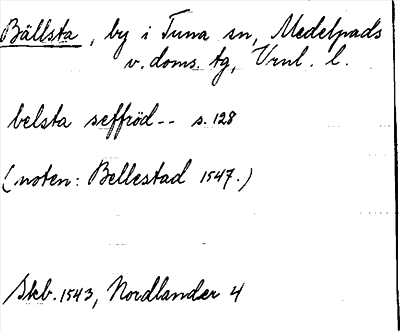 Bällsta, by i Tuna sn, Medelpads
v. doms. tg, Vrnl. l.
belsta seffröd-- s. 128
(noten: Bellestad 1547.)
Skb. 1543, Nordlander 4